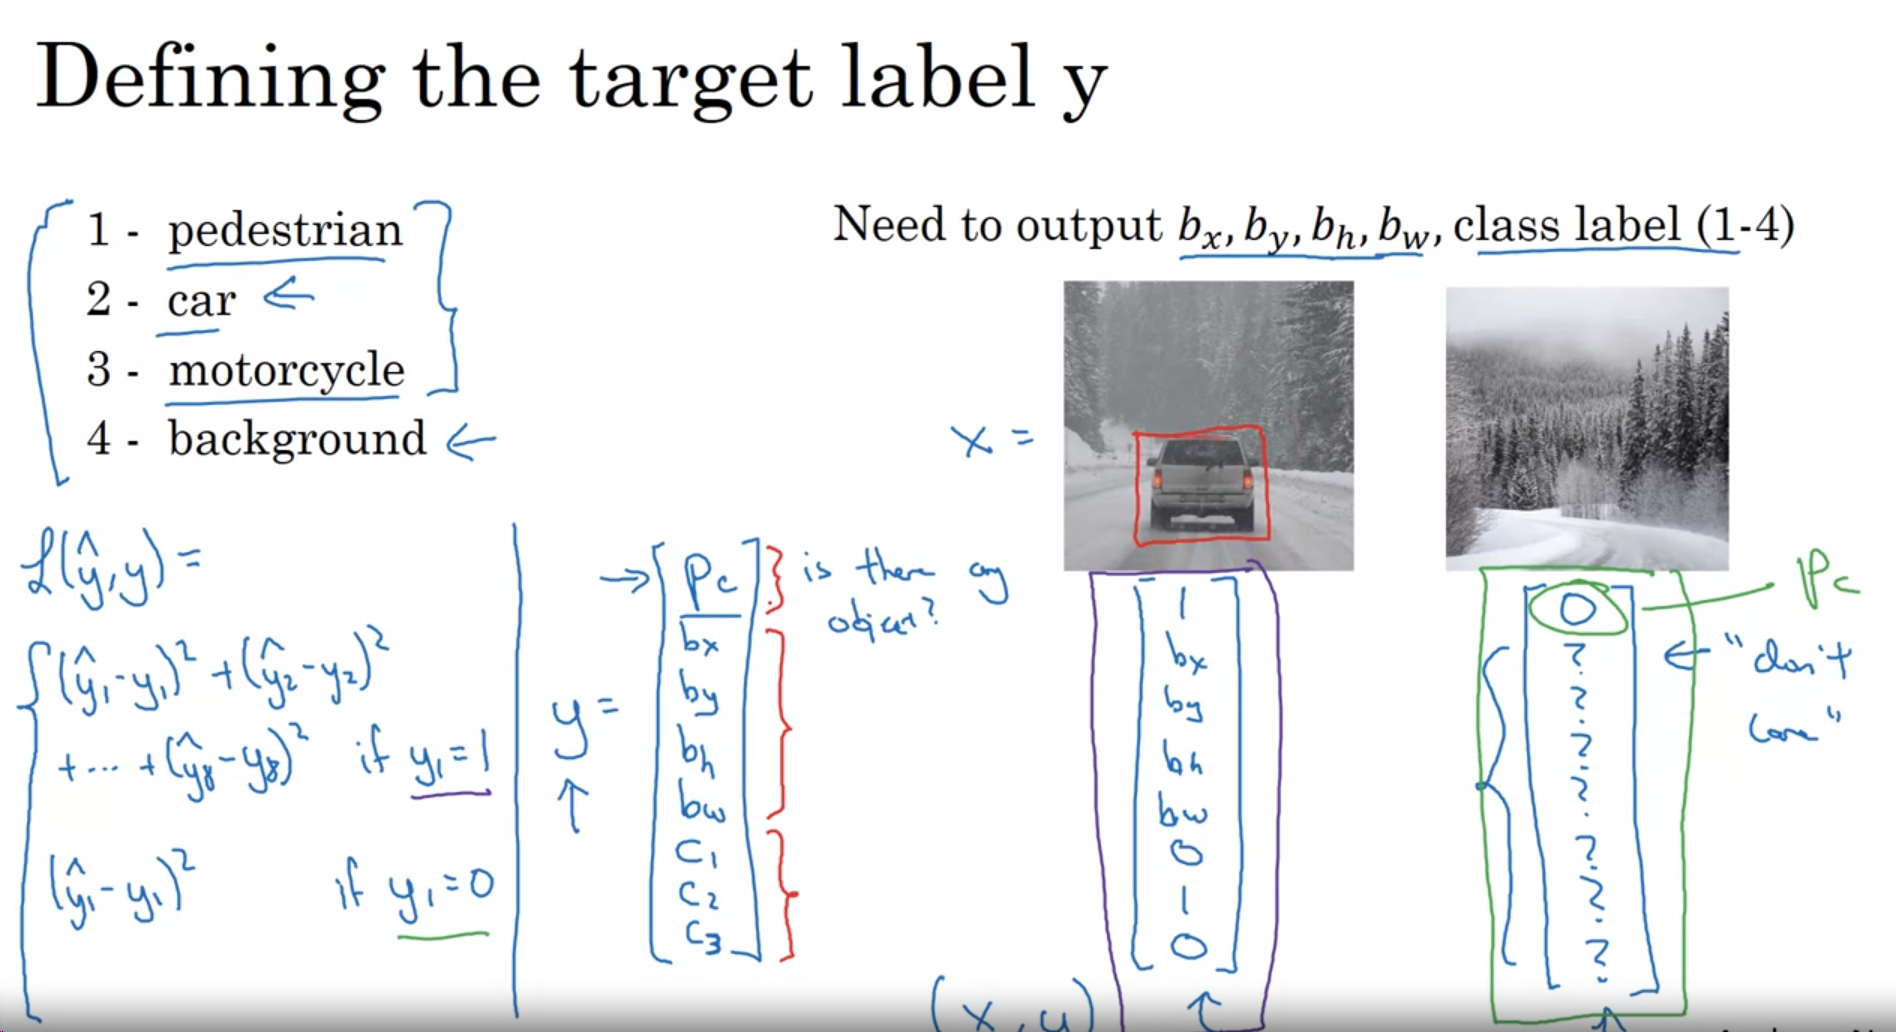 Defining the target label y
1 - pedestrian
2 - car
3 - motorcycle
4 - background
Need to output bₓ, b_y, b_h, b_w, class label (1-4)
x =
ℒ(ŷ, y) =
(ŷ₁ - y₁)² + (ŷ₂ - y₂)²
+ ... + (ŷ₈ - y₈)² if y₁ = 1
(ŷ₁ - y₁)² if y₁ = 0
y =
Pc
bx
by
bh
bw
C₁
C₂
C₃
is there any
object?
1
bx
by
bh
bw
0
1
0
(x, y)
0
?
?
?
?
?
?
?
Pc
"don't
care"